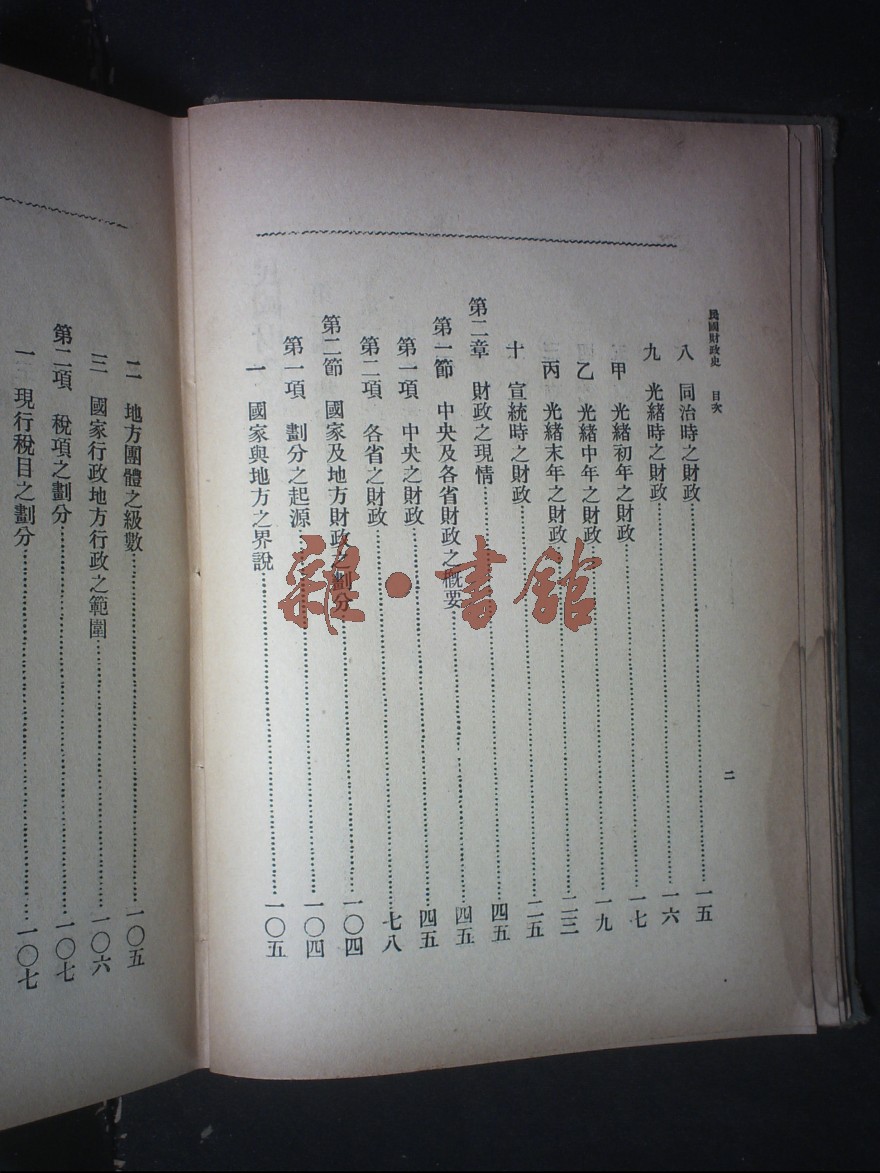 民國財政史 目次
二
八 同治時之財政……一五
九 光緒時之財政……一六
甲 光緒初年之財政……一七
乙 光緒中年之財政……一九
丙 光緒末年之財政……二三
十 宣統時之財政……二五
第二章 財政之現情……四五
第一節 中央及各省財政之概要……四五
第一項 中央之財政……四五
第二項 各省之財政……七八
第二節 國家及地方財政之劃分……一〇四
第一項 劃分之起源……一〇四
一 國家與地方之界說……一〇五
二 地方團體之級數……一〇五
三 國家行政地方行政之範圍……一〇六
第二項 稅項之劃分……一〇七
一 現行稅目之劃分……一〇七
雜·書館